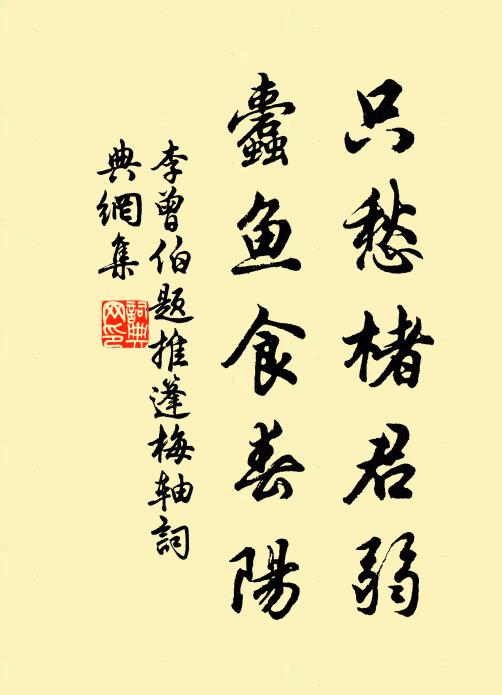 只愁楮君弱
蠹鱼食春陽
李曾伯題推篷梅轴詞
典網集
詞典网印